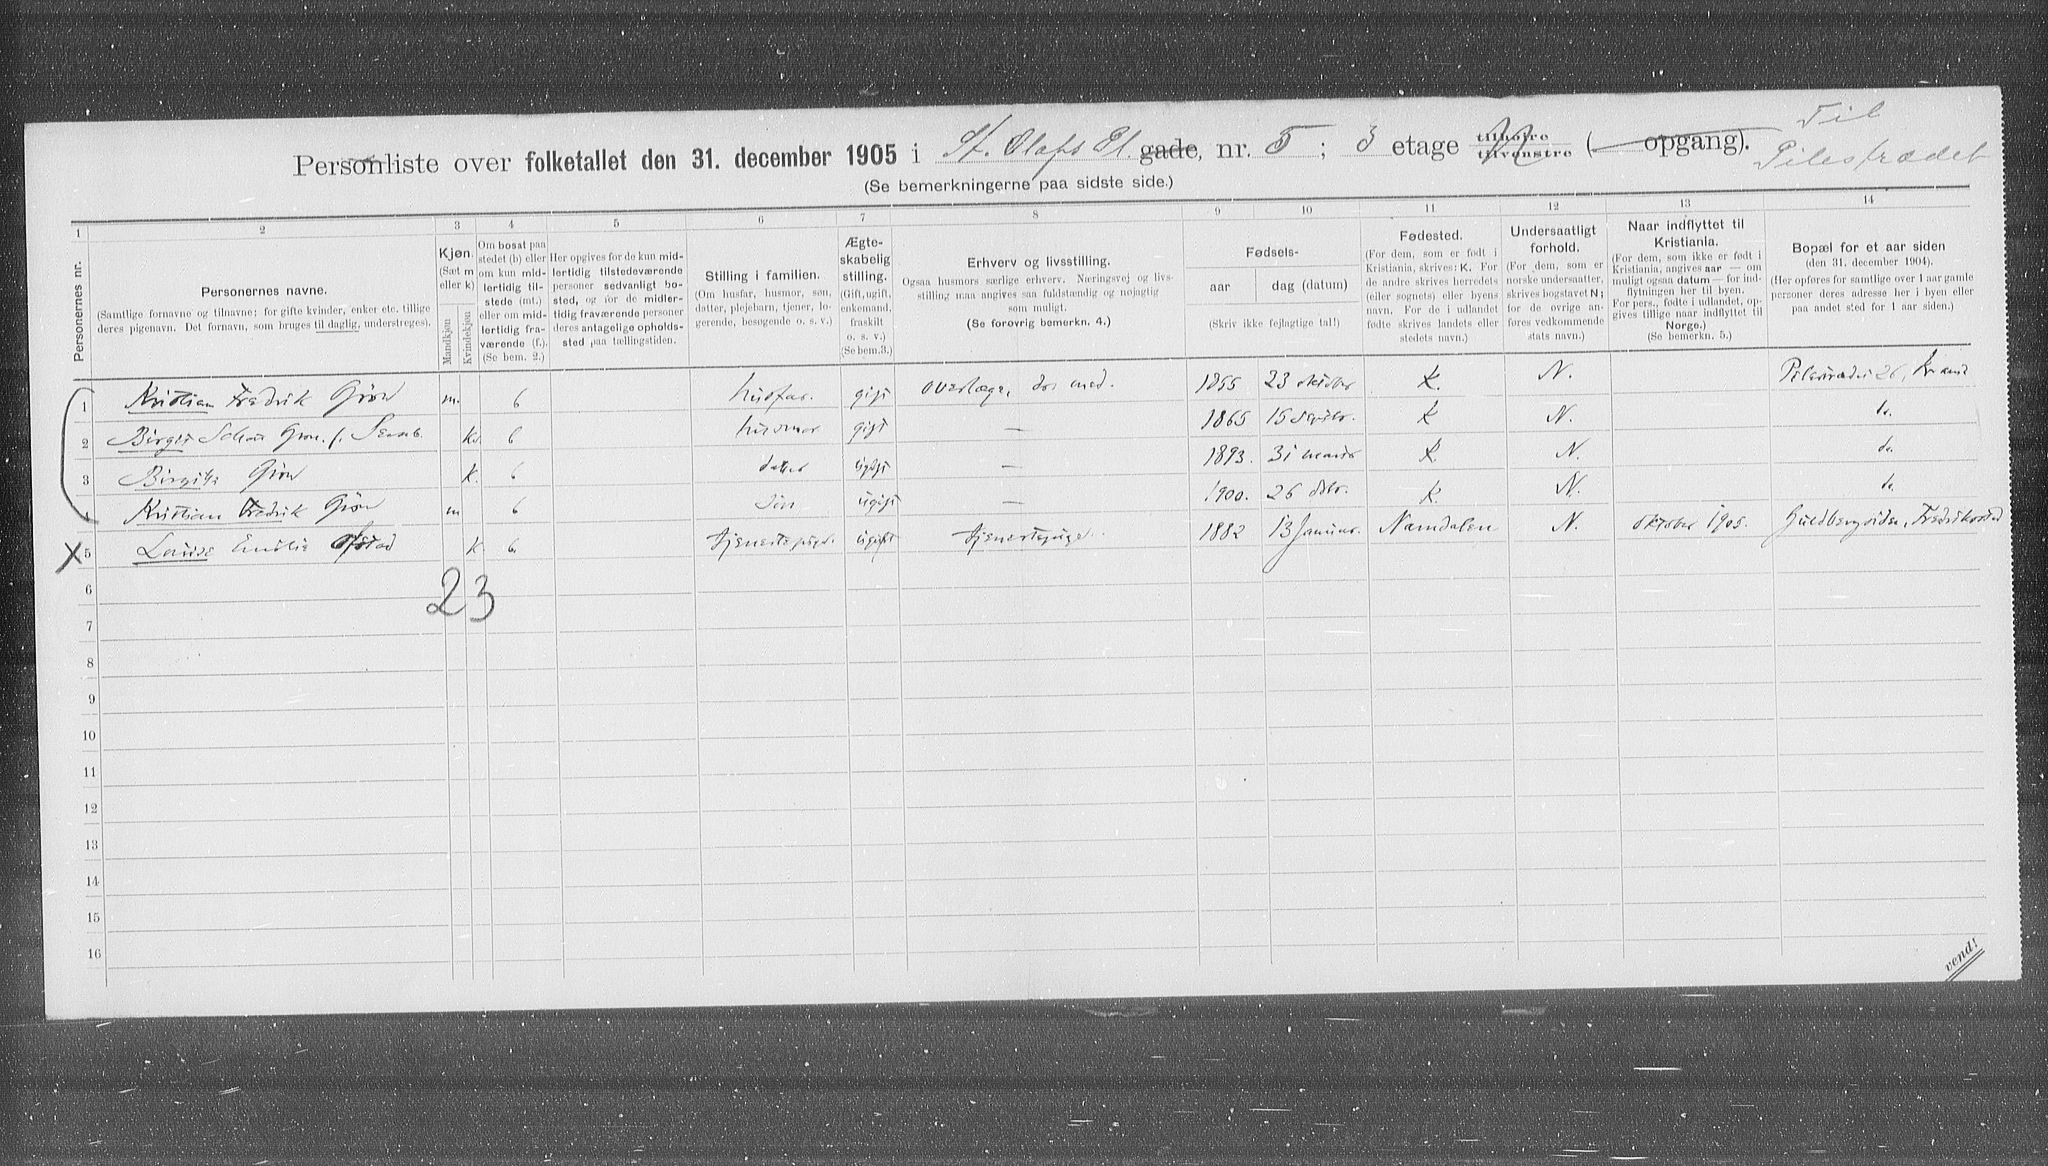 Til
Pilestrædet
Personliste over folketallet den 31. december 1905 i St. Olafs Pl. gade, nr. 5 ; 3 etage tilhøire tilvenstre ( opgang).
(Se bemerkningerne paa sidste side.)
1 2 3 4 5 6 7 8 9 10 11 12 13 14
Personernes nr.
Personernes navne.
(Samtlige fornavne og tilnavne; for gifte kvinder, enker etc. tillige
deres pigenavn. Det fornavn, som bruges til daglig, understreges).
Kjøn.
(Sæt m
eller k)
Mandkjøn
Kvindekjøn
Om bosat paa
stedet (b) eller
om kun mid-
lertidig til-
stede (mt.)
eller om mid-
lertidig fra-
værende (f.).
(Se bem. 2.)
Her opgives for de kun mid-
lertidig tilstedeværende
personer sedvanligt bo-
sted, og for de midler-
tidig fraværende personer
deres antagelige opholds-
sted paa tællingstiden.
Stilling i familien.
(Om husfar, husmor, søn,
datter, plejebarn, tjener, lo-
gerende, besøgende o. s. v.)
Ægte-
skabelig
stilling.
(Gift, ugift,
enkemand,
fraskilt
o. s. v.)
(Se bem.3.)
Erhverv og livsstilling.
Ogsaa husmors særlige erhverv. Næringsvej og livs-
stilling maa angives saa fuldstændig og nøjagtig
som muligt.
(Se forøvrig bemerkn. 4.)
Fødsels-
aar
dag (datum)
(Skriv ikke fejlagtige tal!)
Fødested.
(For dem, som er født i
Kristiania, skrives: K. For
de andre skrives herredets
(eller sognets) eller byens
navn. For de i udlandet
fødte skrives landets eller
stedets navn.)
Undersaatligt
forhold.
(For dem, som er
norske undersaatter,
skrives bogstavet N;
for de øvrige an-
føres vedkommende
stats navn.)
Naar indflyttet til
Kristiania.
(For dem, som ikke er født i
Kristiania, angives aar — om
muligt ogsaa datum — for ind-
flytningen her til byen.
For pers., fødte i udlandet, op-
gives tillige naar indflyttet til
Norge.)
(Se bemerkn. 5.)
Bopæl for et aar siden
(den 31. december 1904).
(Her opføres for samtlige over 1 aar gamle
personer deres adresse her i byen eller
paa andet sted for 1 aar siden.)
1 Kristian Fredrik Grøn m. b husfar. gift overlæge, dr. med. 1855 23 oktober K. N. Pilestrædet 26,
2 Birgit Grøn f. k. b husmor gift — 1865 15 Septbr. K N. do.
3 Birgitte Grøn k. b datter ugift — 1893. 31 K. N. do.
4 Kristian Fredrik Grøn m b søn ugift — 1900. 26 K N. do.
X 5 Louise Emilie k. b. tjenestepige. ugift tjenestepige. 1882 13 Januar. Namdalen N. oktober 1905. Fredrikstad
23
6
7
8
9
10
11
12
13
14
15
16
vend!